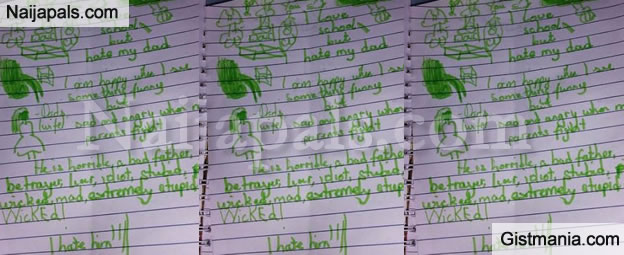 Naijapals.com
I Love
school
but
hate my dad
I am happy when I see
something funny
sad and angry when
fight
He is horrible, a bad father
betrayer, liar, idiot, stupid,
wicked, mad, extremely stupid
WicKEd
I hate him!!!
I Love
school
but
hate my dad
I am happy when I see
something funny
sad and angry when
fight
He is horrible, a bad father
betrayer, liar, idiot, stupid,
wicked, mad, extremely stupid
WicKEd
I hate him!!!
I Love
school
but
hate my dad
I am happy when I see
something funny
sad and angry when
fight
He is horrible, a bad father
betrayer, liar, idiot, stupid,
wicked, mad, extremely stupid
WicKEd
I hate him!!!
Naijapals.com
Gistmania.com